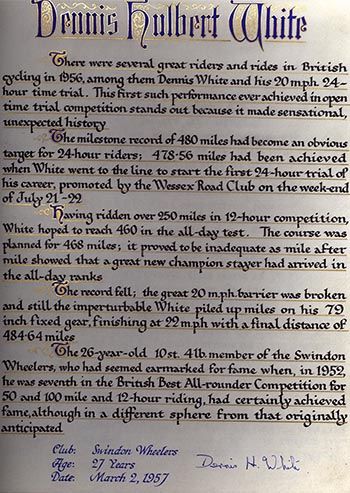 Dennis Hulbert White
There were several great riders and rides in British
cycling in 1956, among them Dennis White and his 20 m.p.h. 24-
hour time trial. This first such performance ever achieved in open
time trial competition stands out because it made sensational,
unexpected history
The milestone record of 480 miles had become an obvious
target for 24-hour riders; 478·56 miles had been achieved
when White went to the line to start the first 24-hour trial of
his career, promoted by the Wessex Road Club on the week-end
of July 21-22
Having ridden over 250 miles in 12-hour competition,
White hoped to reach 460 in the all-day test. The course was
planned for 468 miles; it proved to be inadequate as mile after
mile showed that a great new champion stayer had arrived in
the all-day ranks
The record fell; the great 20 m.p.h. barrier was broken
and still the imperturbable White piled up miles on his 79
inch fixed gear, finishing at 22 m.p.h with a final distance of
484·64 miles
The 26-year-old 10st. 4lb. member of the Swindon
Wheelers, who had seemed earmarked for fame when, in 1952,
he was seventh in the British Best All-rounder Competition for
50 and 100 mile and 12-hour riding, had certainly achieved
fame, although in a different sphere from that originally
anticipated
Club: Swindon Wheelers
Age: 27 Years
Date: March 2, 1957
Dennis H. White